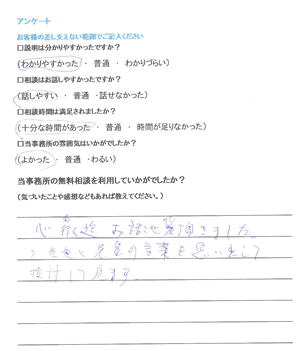 アンケート
お客様の差し支えない範囲でご記入ください
□説明は分かりやすかったですか？
(わかりやすかった ・ 普通 ・ わかりづらい)
□相談はお話しやすかったですか？
(話しやすい ・ 普通 ・話せなかった)
□相談時間は満足されましたか？
(十分な時間があった ・ 普通 ・ 時間が足りなかった)
□当事務所の雰囲気はいかがでしたか？
(よかった ・ 普通 ・わるい)
当事務所の無料相談を利用していかがでしたか？
(気づいたことや感想などもあれば教えてください。)
心行く迄 お話させ頂きました。
先生の言葉を思い出して
検討して見ます。